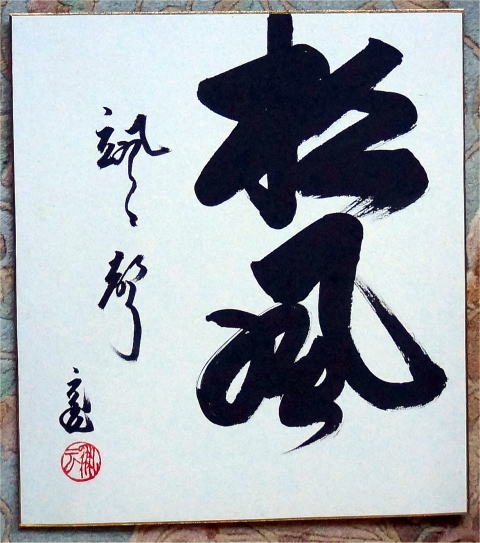 松風
颯々聲